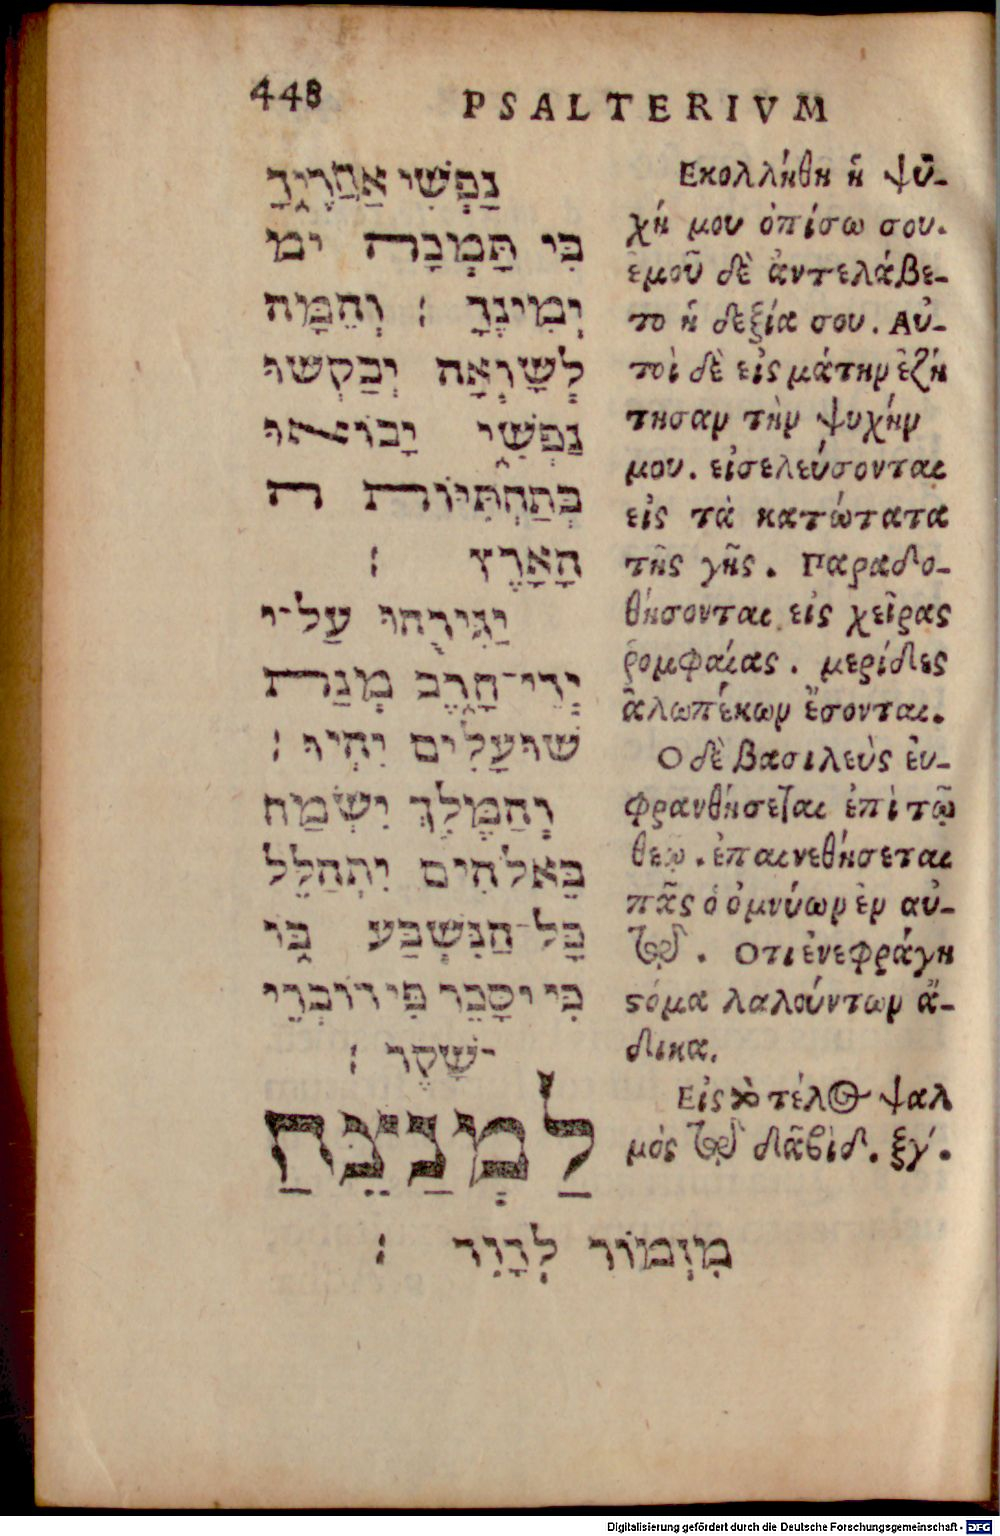 448
PSALTERIVM
נַפְשִׁי אַחֲרֶיךָ
כִּי תָּמְכָה ימ
יְמִינֶךָ : וְהֵמָּה
לְשׁוֹאָה יְבַקְשׁוּ
נַפְשִׁי יָבוֹאוּ
בְּתַחְתִּיּוֹת ה
הָאָרֶץ :
יַגִּירֻהוּ עַל־י
יְדֵי־חָרֶב מְנָת
שׁוּעָלִים יִהְיוּ :
וְהַמֶּלֶךְ יִשְׂמַח
בֵּאלֹהִים יִתְהַלֵּל
כָּל־הַנִּשְׁבָּע בּוֹ
כִּי יסָּכֵר פִּי דוֹבְרֵי
־שָׁקֶר :
לַמְנַצֵּחַ
מִזְמוֹר לְדָוִד :
Εκολλήθη ἡ ψυ-
χή μου ὀπίσω σου.
ἐμοῦ δὲ ἀντελάβε-
το ἡ δεξία σου. Αὐ-
τοὶ δὲ εἰς μάτην ἐζή
τησαν τὴν ψυχήν
μου. εἰσελεύσονται
εἰς τὰ κατώτατα
τῆς γῆς. Παραδο-
θήσονται εἰς χεῖρας
ῥομφαίας. μερίδες
ἀλωπέκων ἔσονται.
Ο δὲ βασιλεὺς εὐ-
φρανθήσεται ἐπὶ τῷ
θεῷ. ἐπαινεθήσεται
πᾶς ὁ ὀμνύων ἐν αὐ-
τῷ. Οτι ἐνεφράγη
ϛόμα λαλούντων ἄ-
δικα.
Εἰς τὸ τέλος ψαλ
μὸς τῷ δαβὶδ. ξγʹ.
Digitalisierung gefördert durch die Deutsche Forschungsgemeinschaft - DFG